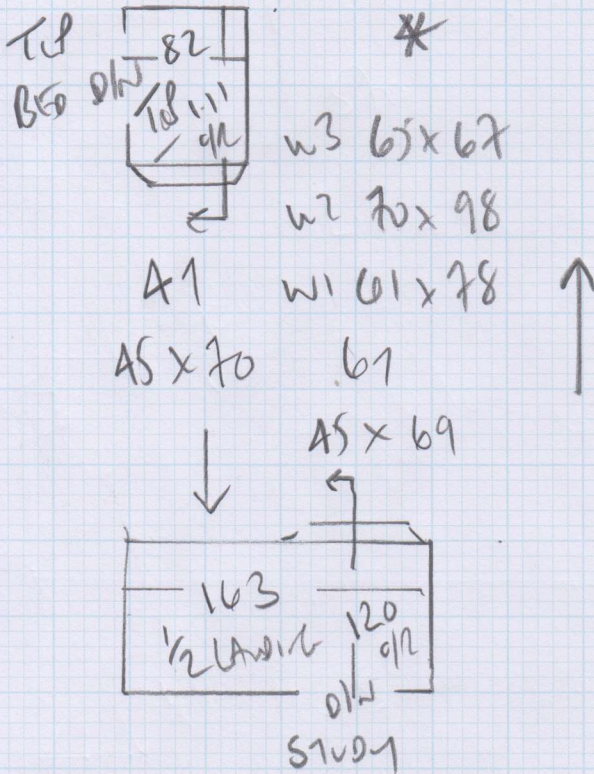 TOP
BED
D/W
82
TOP 1.11
O/R
*
W3 65 x 67
W2 70 x 98
W1 61 x 78
41
45 x 70
61
45 x 69
163
1/2 LANDING
120
O/R
D/W
STUDY